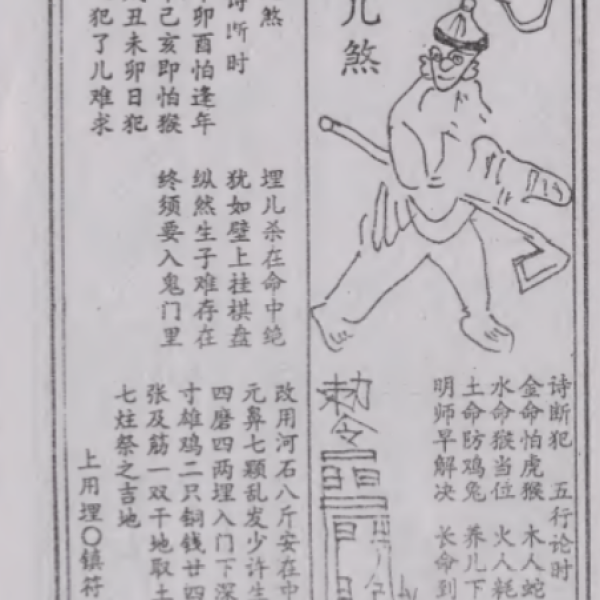 儿煞
诗断犯 五行论时
金命怕虎猴 木人蛇
水命猴当位 火人耗
土命防鸡兔 养儿下
明师早解决 长命到
勅令
煞
诗断时
卯酉怕逢年
己亥即怕猴
丑未卯日犯
犯了儿难求
埋儿杀在命中绝
犹如壁上挂棋盘
纵然生子难存在
终须要入鬼门里
改用河石八斤安在中
元鼻七颗乱发少许生
四磨四两埋入门下深
寸雄鸡二只铜钱廿四
张及筋一双干地取土
七炷祭之吉地
上用埋〇镇符